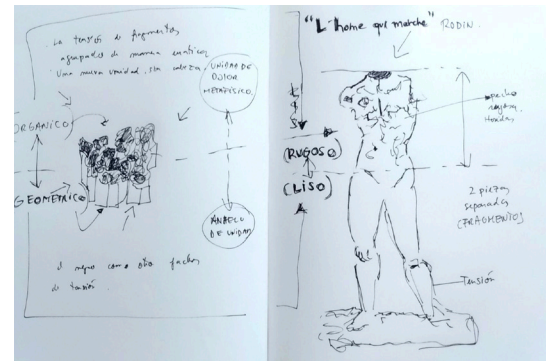 La tensión de fragmentos
agrupados de manera
Una nueva unidad.
UNIDAD DE
DOLOR
METAFÍSICO.
ORGANICO
GEOMETRICO
ANHELO
DE UNIDAD
el negro como otro factor
de tensión.
"L'home qui marche" RODIN.
(RUGOSO)
(LISO)
pecho
2 piezas
separadas
(FRAGMENTO)
Tensión